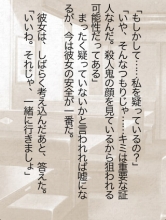 「もしかして……私を疑っているの？」
「いや、そんなつもりじゃ……キミは重要な証
人なんだ。殺人鬼の顔を見ているから狙われる
可能性だってある」
まったく疑っていないかと言われれば嘘にな
るが、今は彼女の安全が一番だ。
彼女は、しばらく考え込んだあと、答えた。
「いいわ。それじゃ、一緒に行きましょ」